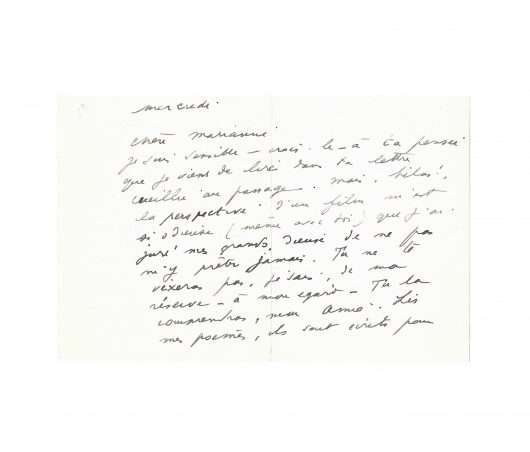 mercredi.
chère marianne
je suis sensible – crois-le – à ta pensée
que je viens de lire dans ta lettre
cueillie au passage. mais, hélas!,
la perspective d'un film m'est
si odieuse (même avec toi) que j'ai
juré mes grands dieux de ne pas
m'y prêter jamais. Tu ne te
vexeras pas, je sais, de ma
réserve – à mon égard – Tu la
comprendras, mon Amie. Lis
mes poèmes, ils sont écrits pour